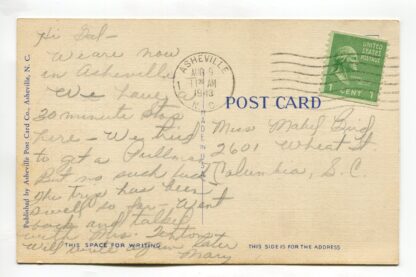 Published by Asheville Post Card Co., Asheville, N. C.
Hi Gal-
We are now
in Asheville
We have
30 minute stop
here - We tried
to get a Pullman
But no such luck
The trip has been
swell so far - Went
back and talked
with Mrs.
Will write you later
Mary
ASHEVILLE
1
AUG 9
11 AM
1943
N. C.
UNITED STATES
POSTAGE
1 CENT 1
POST CARD
MADE IN U.S.A.
Miss Mabel Bird
2601 Wheat St.
Columbia, S. C.
THIS SPACE FOR WRITING
THIS SIDE IS FOR THE ADDRESS